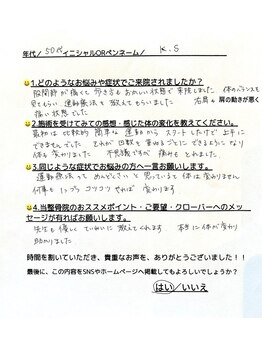 年代／50代 イニシャルORペンネーム／ K.S
1.どのようなお悩みや症状でご来院されましたか？
股関節が痛くて歩き方もおかしい状態で来院しました 体のバランスを
見てもらい 運動療法を教えてもらいました 右肩も肩の動きが悪く
痛い状態でした
2.施術を受けてみての感想・感じた体の変化を教えてください。
最初は比較的簡単な運動からスタートしたけど上手に
できませんでした それが回数を重ねるごとにできるようになり
体も変わりました 不思議ですが痛みもとれました
3.同じような症状でお悩みの方へ一言お願いします。
運動療法って めんどくさいと思っていると体は変わりません
何事も 1つづつ コツコツやれば変わります
4.当整骨院のおススメポイント・ご要望・クローバーへのメッ
セージが有ればお願いします。
先生も優しく ていねいに教えてくれます 本当に体が変わり
助かりました
時間を割いていただき、貴重なお声を、ありがとうございました！！
最後に、この内容をSNSやホームページへ掲載してもよろしいでしょうか？
はい／いいえ